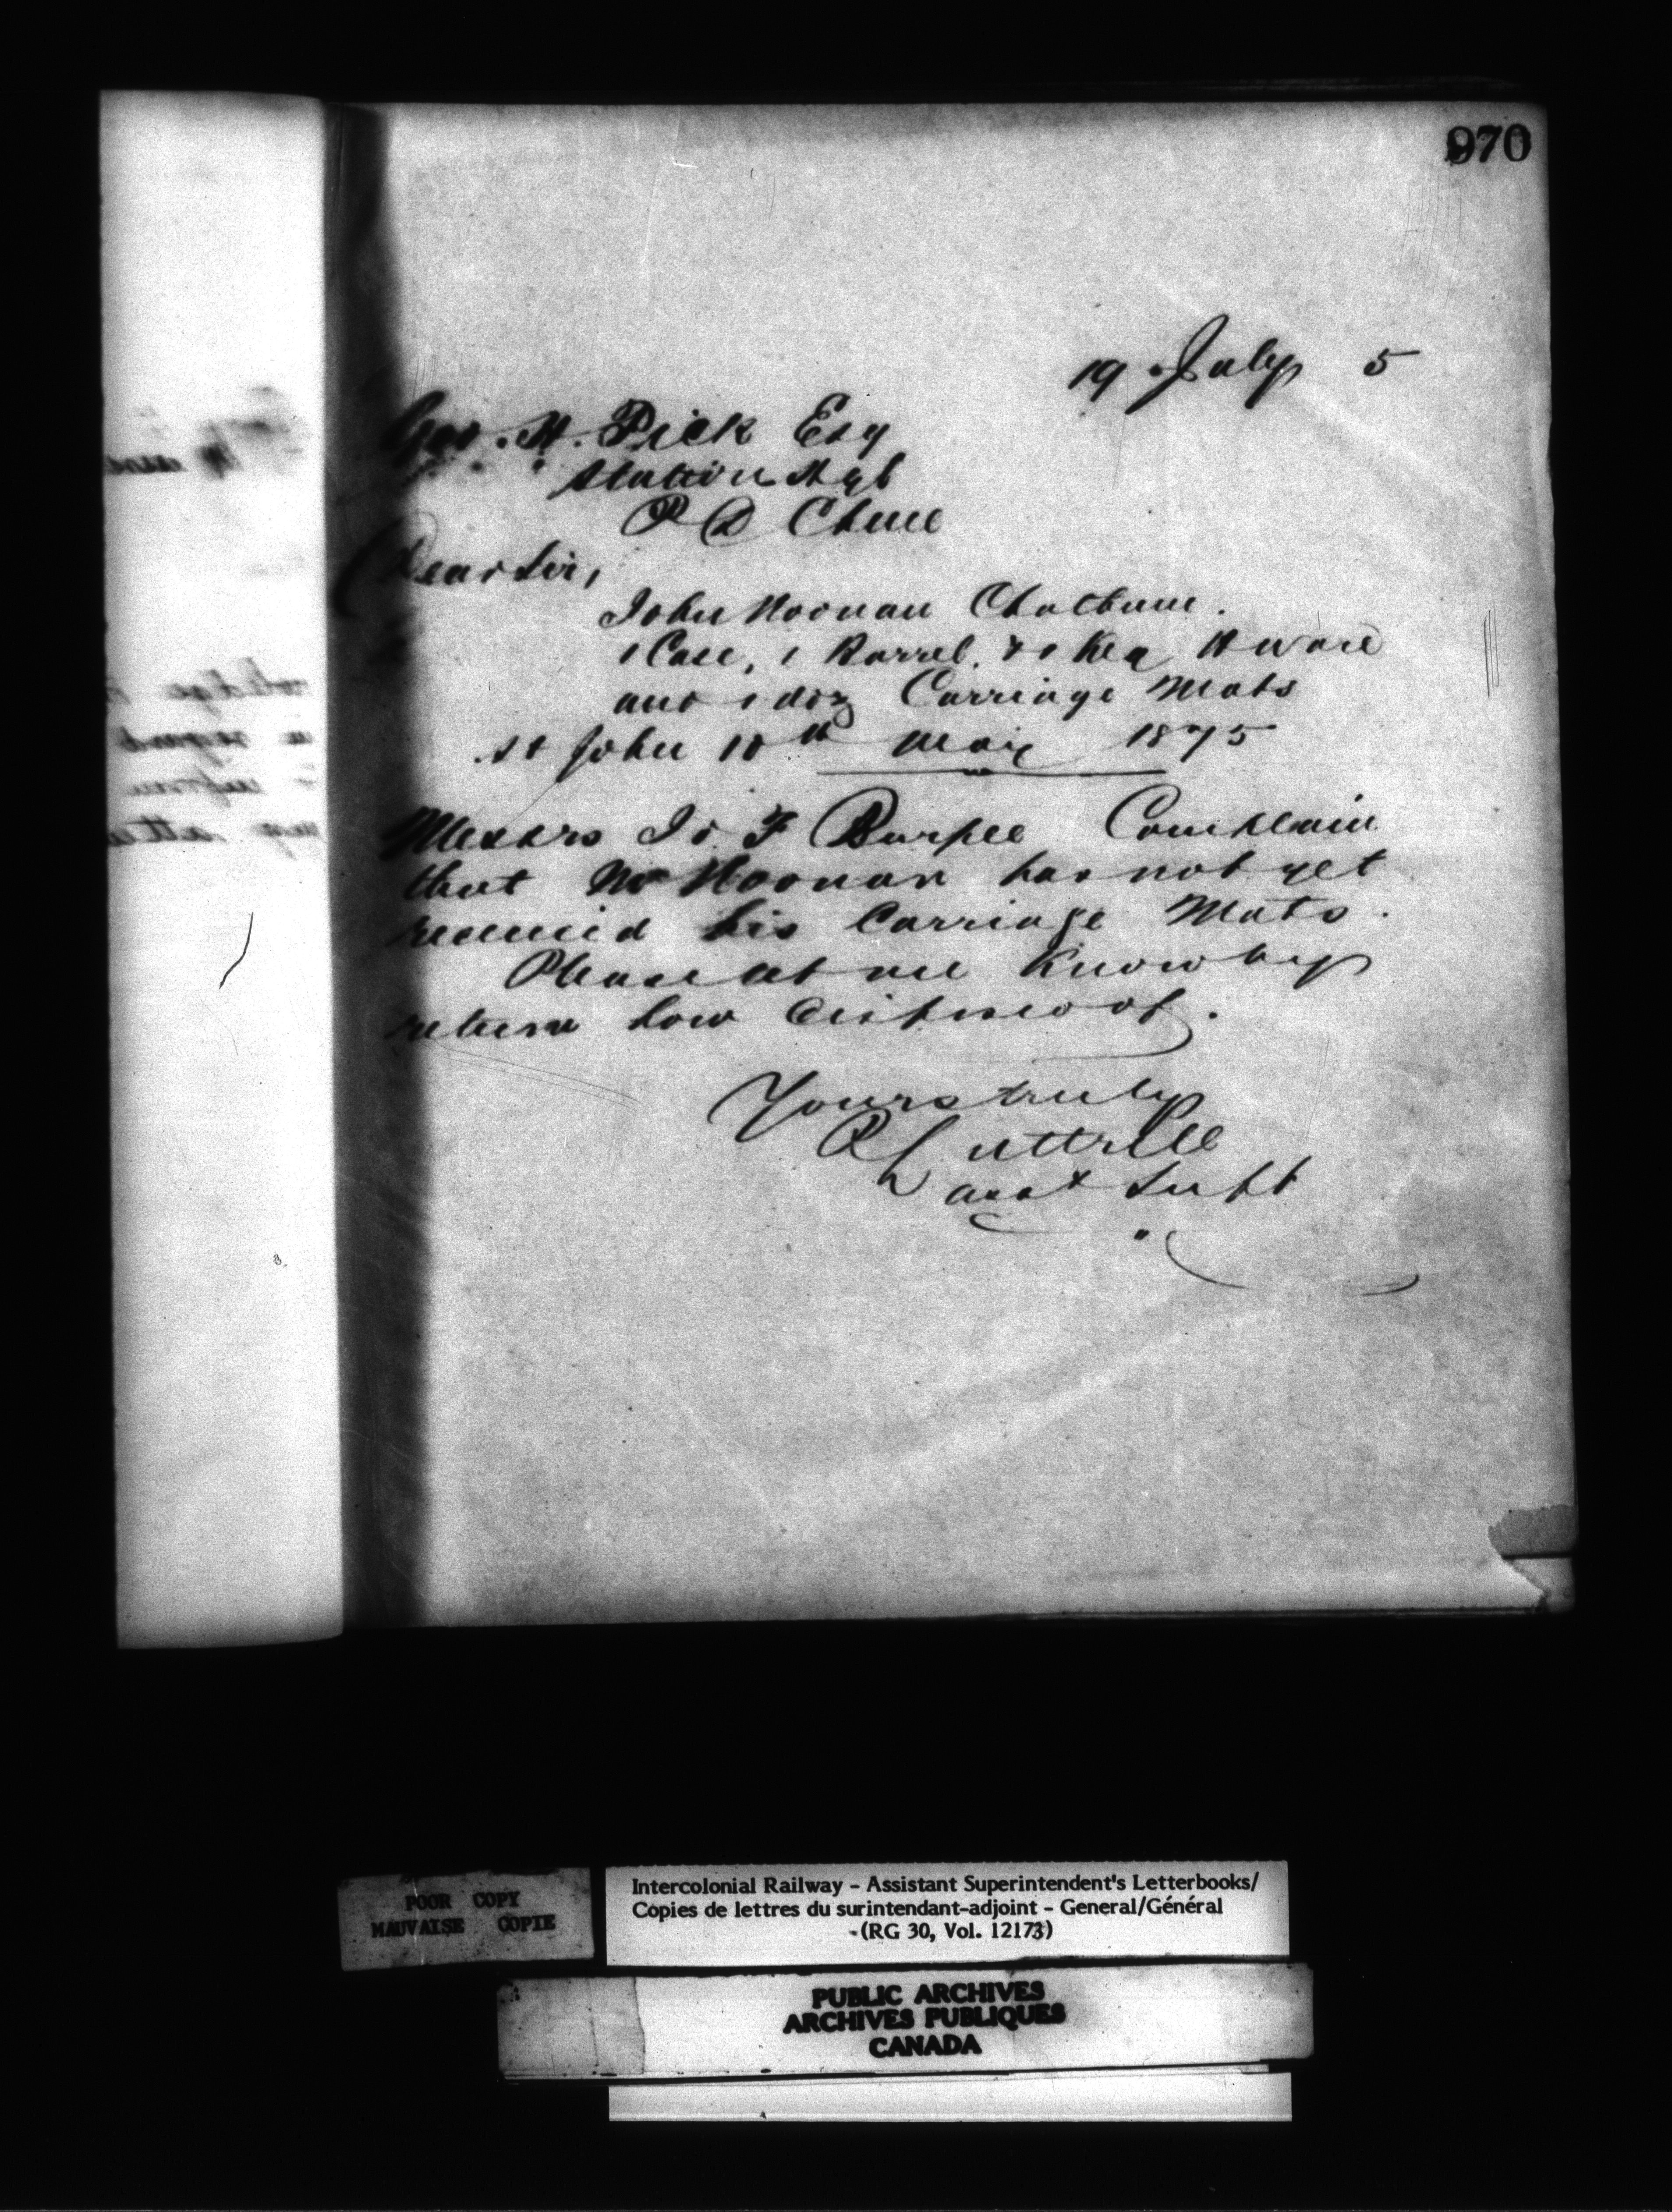 970
19 July 5
Geo. H. Pick Esq
Station Agt
P D Chene
Dear Sir,
John Noonan Chatham.
1 Case, 1 Barrel, & 1 Keg H ware
and 1 doz Carriage Mats
St John 10th May 1875
Messrs I & F Burpee Complain
that Mr Noonan has not yet
received his Carriage Mats.
Please let me Know by
return how disposed of.
Yours truly
R Luttrell
asst Supt
POOR COPY
MAUVAISE COPIE
Intercolonial Railway - Assistant Superintendent's Letterbooks/
Copies de lettres du surintendant-adjoint - General/Général
-(RG 30, Vol. 12173)
PUBLIC ARCHIVES
ARCHIVES PUBLIQUES
CANADA